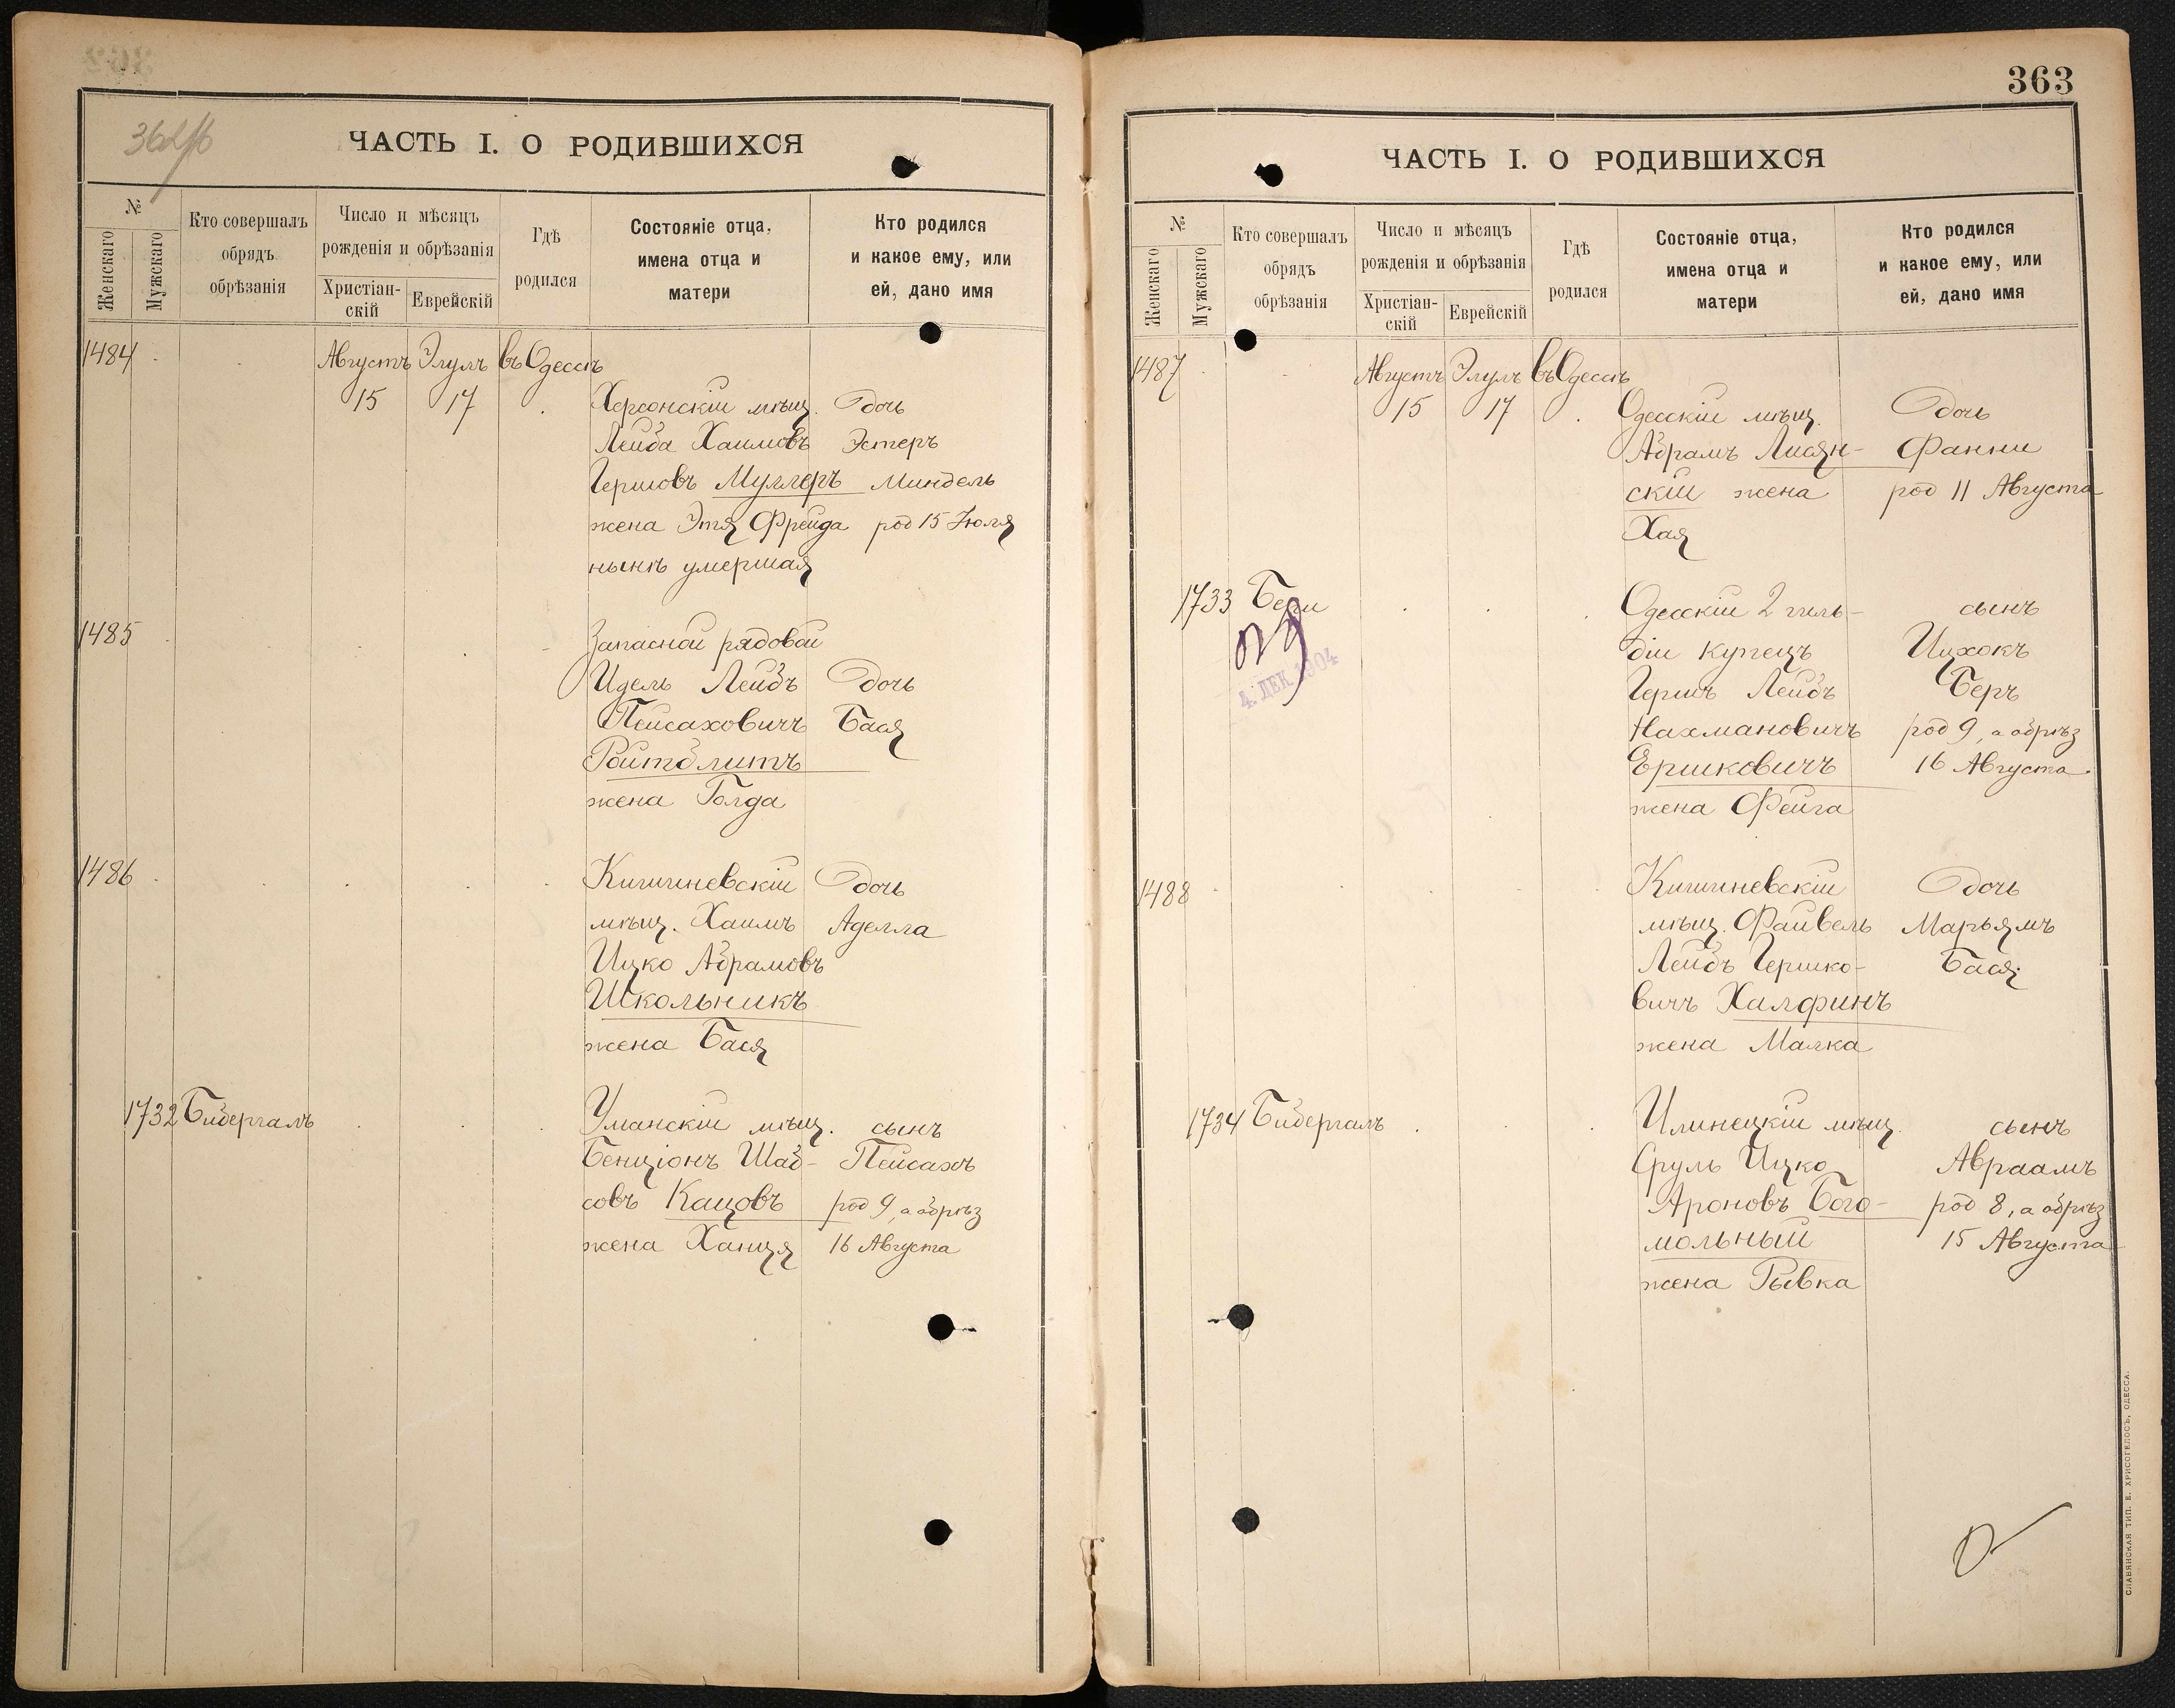 ЧАСТЬ I. О РОДИВШИХСЯ
№
Женскаго
Мужскаго
Кто совершалъ
обрядъ
обрѣзанія
Число и мѣсяцъ
рожденія и обрѣзанія
Христіан-
скій
Еврейскій
Гдѣ
родился
Состояніе отца,
имена отца и
матери
Кто родился
и какое ему, или
ей, дано имя
1484
Августъ Элулъ въ Одессѣ
15 17
Херсонскій мѣщ. Дочь
Лейба Хаимовъ Эстеръ
Гершовъ Муллеръ Миндель
жена Этя Фрейда род 15 Іюля
нынѣ умершая
1485
Запасной рядовой
Идель Лейбъ Дочь
Пейсаховичъ Бася
Ройтблитъ
жена Голда
1486
Кишиневскій Дочь
мѣщ. Хаимъ Аделла
Ицко Абрамовъ
Школьникъ
жена Бася
1732 Бибергалъ
Уманскій мѣщ. сынъ
Бенціонъ Шаб- Пейсахъ
совъ Кацовъ род 9, а обрѣз
жена Ханця 16 Августа
363
ЧАСТЬ I. О РОДИВШИХСЯ
№
Женскаго
Мужскаго
Кто совершалъ
обрядъ
обрѣзанія
Число и мѣсяцъ
рожденія и обрѣзанія
Христіан-
скій
Еврейскій
Гдѣ
родился
Состояніе отца,
имена отца и
матери
Кто родился
и какое ему, или
ей, дано имя
1487
Августъ Элулъ въ Одессѣ
15 17
Одесскій мѣщ. Дочь
Абрамъ Лисян- Фанни
скій жена род 11 Августа
Хая
1733
4. ДЕК. 1904
Одесскій 2 гиль- сынъ
діи купецъ Ицхокъ
Гершъ Лейбъ Беръ
Нахмановичъ род 9, а обрѣз
Ершковичъ 16 Августа
жена Фейга
1488
Кишиневскій Дочь
мѣщ. Файвель Марьямъ
Лейбъ Гершко- Бася
вичъ Халфинъ
жена Малка
1734 Бибергалъ
Илинецкій мѣщ. сынъ
Сруль Ицко Авраамъ
Ароновъ Бого- род 8, а обрѣз
мольный 15 Августа
жена Рывка
СЛАВЯНСКАЯ ТИП. Е. ХРИСОГЕЛОСЪ, ОДЕССА.